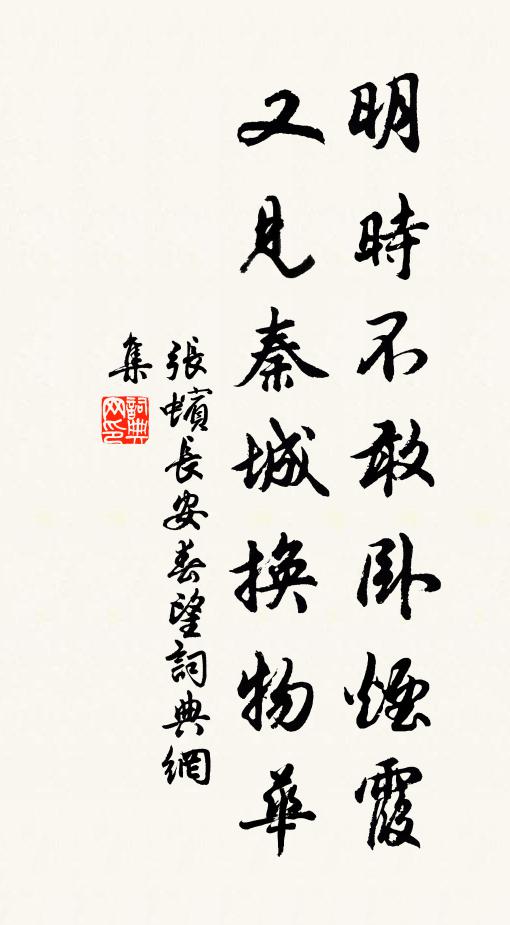 明時不敢臥煙霞
又見秦城換物華
張蠙長安春望詞典網
集
詞典
网印